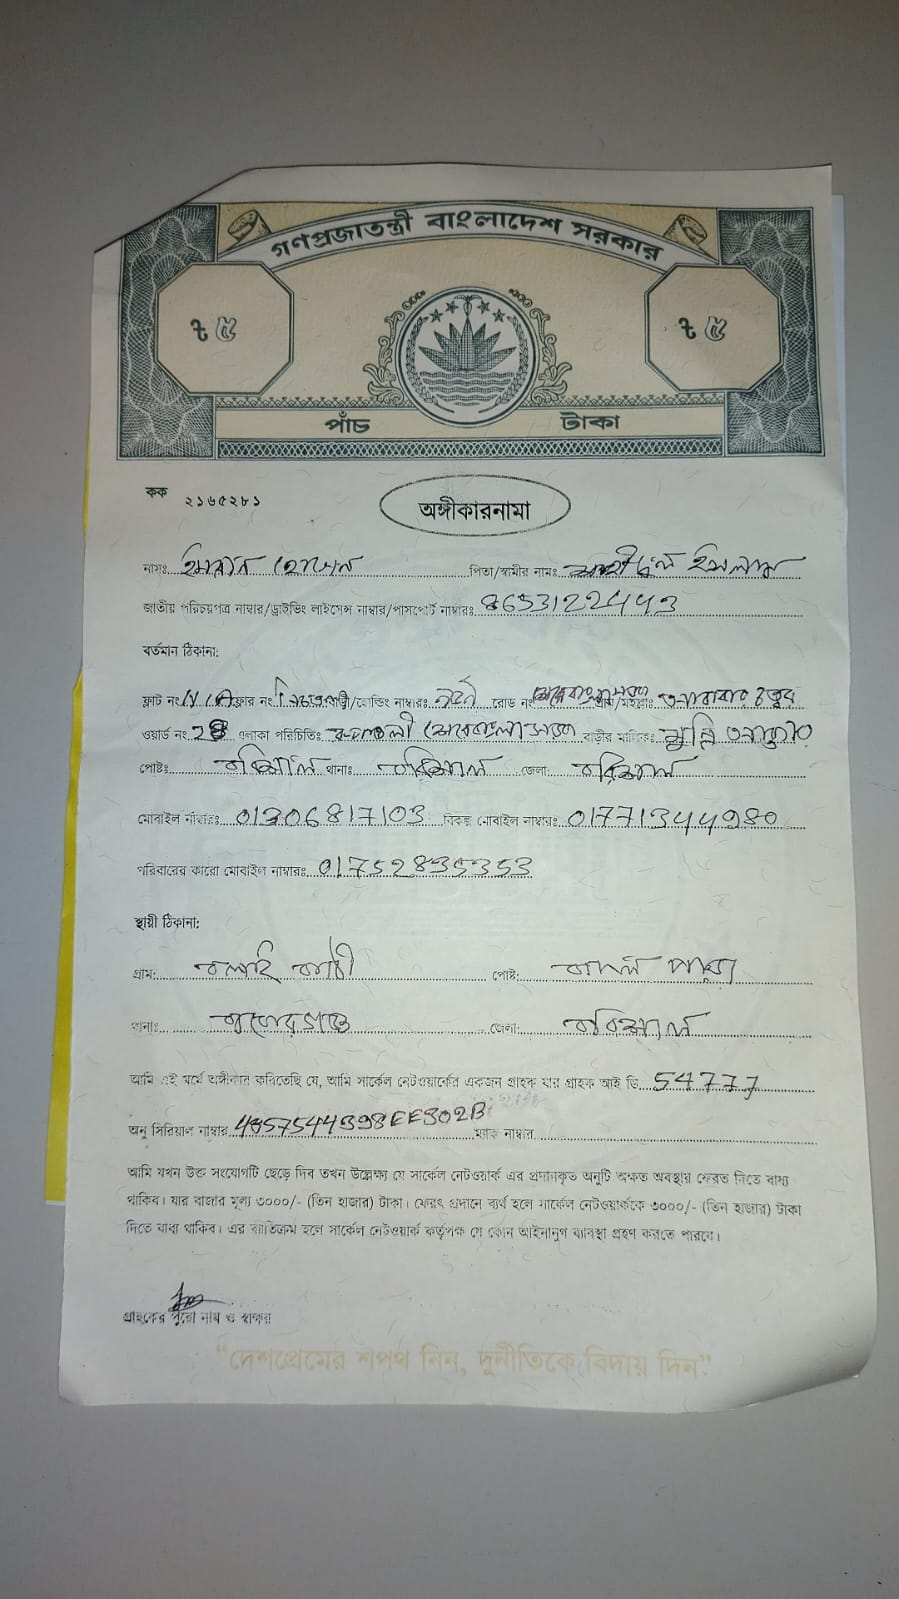 গণপ্রজাতন্ত্রী বাংলাদেশ সরকার
৳ ৫ ৳ ৫
পাঁচ টাকা
কক ২১৬৫২৮১
অঙ্গীকারনামা
নামঃ ইমরান হোসেন পিতা/স্বামীর নামঃ ইসলাম
জাতীয় পরিচয়পত্র নাম্বার/ড্রাইভিং লাইসেন্স নাম্বার/পাসপোর্ট নাম্বারঃ 8653122443
বর্তমান ঠিকানা:
ফ্লাট নং N/A ফ্লোর নং নিচতলা বাড়ী/হোল্ডিং নাম্বারঃ রোড নং গ্রাম/মহল্লাঃ
ওয়ার্ড নং 2 এলাকা পরিচিতিঃ রুপাতলী শেরেবাংলা সড়ক বাড়ীর মালিকঃ মুন্নি
পোষ্টঃ বরিশাল থানাঃ বরিশাল জেলা: বরিশাল
মোবাইল নাম্বারঃ 01306817103 বিকল্প মোবাইল নাম্বারঃ 01771344980
পরিবারের কারো মোবাইল নাম্বারঃ 01752835353
স্থায়ী ঠিকানা:
গ্রাম: বলই কাঠী পোষ্ট: পাড়া
থানাঃ বাকেরগঞ্জ জেলা: বরিশাল
আমি এই মর্মে অঙ্গীকার করিতেছি যে, আমি সার্কেল নেটওয়ার্কের একজন গ্রাহক যার গ্রাহক আই ডি. 54777
অনু সিরিয়াল নাম্বার 4857544398EE302B ম্যাক নাম্বার
আমি যখন উক্ত সংযোগটি ছেড়ে দিব তখন উল্লেক্ষ্য যে সার্কেল নেটওয়ার্ক এর প্রদানকৃত অনুটি অক্ষত অবস্থায় ফেরত দিতে বাধ্য
থাকিব। যার বাজার মূল্য ৩০০০/- (তিন হাজার) টাকা। ফেরৎ প্রদানে ব্যর্থ হলে সার্কেল নেটওয়ার্ককে ৩০০০/- (তিন হাজার) টাকা
দিতে বাধ্য থাকিব। এর ব্যতিক্রম হলে সার্কেল নেটওয়ার্ক কর্তৃপক্ষ যে কোন আইনানুগ ব্যাবস্থা গ্রহণ করতে পারবে।
গ্রাহকের পুরো নাম ও স্বাক্ষর
"দেশপ্রেমের শপথ নিন, দুর্নীতিকে বিদায় দিন"